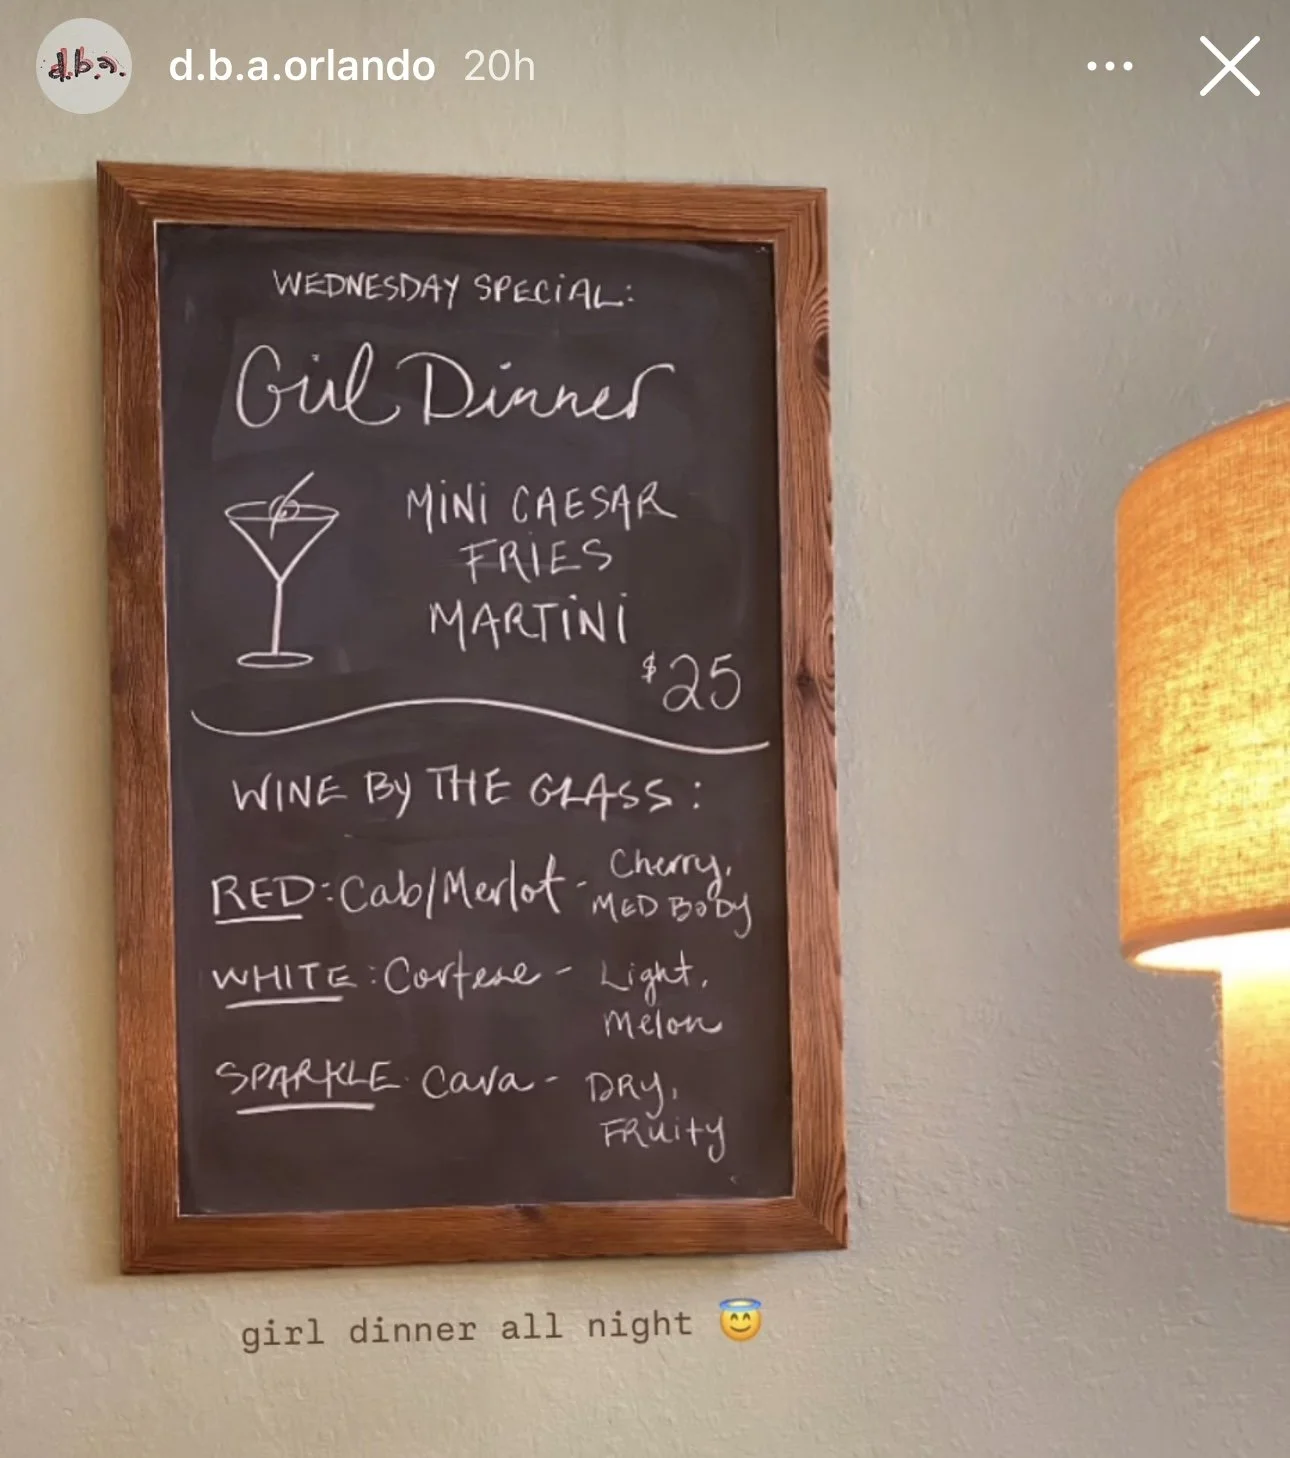 d.b.a.
d.b.a.orlando 20h
WEDNESDAY SPECIAL:
Girl Dinner
MINI CAESAR
FRIES
MARTINI
$25
WINE BY THE GLASS:
RED: Cab/Merlot - Cherry,
MED BODY
WHITE: Cortese - Light,
Melon
SPARKLE: Cava - DRY,
FRUITY
girl dinner all night 😇